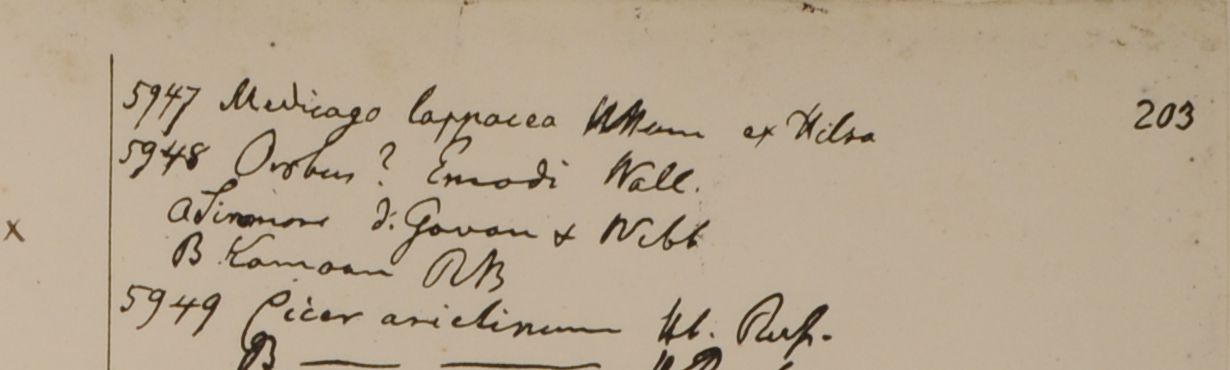 203
5947 Medicago lappacea ex Hilsa
5948 Orobus? Emodi Wall.
a Sirmore d: Govan & Webb
B Kamaon RB
5949 Cicer arietinum Hb. Rusp.
B
x